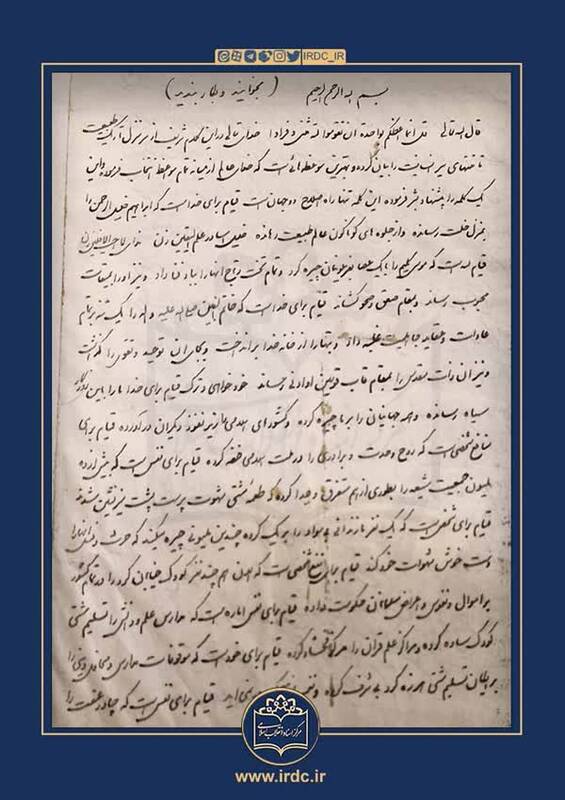 IRDC_IR
بسم الله الرحمن الرحیم (بخوانید و بکار بندید)
قال الله تعالی قل انما اعظکم بواحدة ان تقوموا لله مثنی و فرادا خدای تعالی در این کلام شریف از سرمنزل تاریک طبیعت
تا منتهای سیر انسانیت را بیان کرده و بهترین موعظه هائی است که خدای عالم از میانه تمام مواعظ انتخاب فرموده و این
یک کلمه را پیشنهاد بشر فرموده این کلمه تنها راه اصلاح دو جهان است قیام برای خدا است که ابراهیم خلیل الرحمن را
بمنزل خلت رسانده و از جلوه های گوناگون عالم طبیعت رهانده خلیل آسا در علم الیقین زن ندای لا احب الافلین زن
قیام لله است که موسی کلیم را با یک عصا بفرعونیان چیره کرد و تمام تخت و تاج آنها را بباد فنا داد و نیز او را بمیقات
محبوب رساند و بمقام صعق و صحو کشاند قیام برای خدا است که خاتم النبیین صلی الله علیه و آله را یک تنه بر تمام
عادات و عقاید جاهلیت غلبه داد و بتها را از خانه خدا برانداخت و بجای آن توحید و تقوی را گذاشت
و نیز آن ذات مقدس را بمقام قاب قوسین او ادنی رساند خودخواهی و ترک قیام برای خدا ما را باین روزگار
سیاه رسانده و همه جهانیان را بر ما چیره کرده و کشورهای اسلامی را زیر نفوذ دیگران درآورده قیام برای
منافع شخصی است که روح وحدت و برادری را در ملت اسلامی خفه کرده قیام برای نفس است که بیش از ده
ملیون جمعیت شیعه را بطوری از هم متفرق و جدا کرده که طعمه مشتی شهوت پرست پشت میزنشین شدند
قیام برای شخص است که یک نفر مازندرانی بیسواد را بر یک گروه چندین ملیونی چیره میکند که حرث و نسل آنها را
دست خوش شهوات خود کند قیام برای نفع شخصی است که الان هم چند نفر کودک خیابان گرد را در تمام کشور
بر اموال و نفوس و اعراض مسلمانان حکومت داده قیام برای نفس اماره است که مدارس علم و دانش را تسلیم مشتی
کودک ساده کرده و مراکز علم قرآن را مرکز فحشاء کرده قیام برای خود است که موقوفات مدارس و محافل دینی را
برایگان تسلیم مشتی هرزه گرد بی شرف کرده و نفس از نمی آید قیام برای نفس است که چادر عفت را
مرکز اسناد انقلاب اسلامی
www.irdc.ir